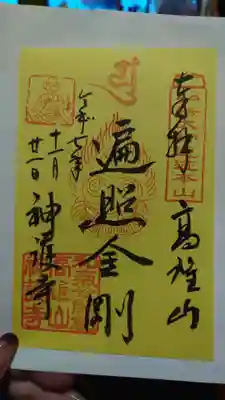 奉拝 高雄山
遍照金剛
令和七年
十一月
廿一日
神護寺